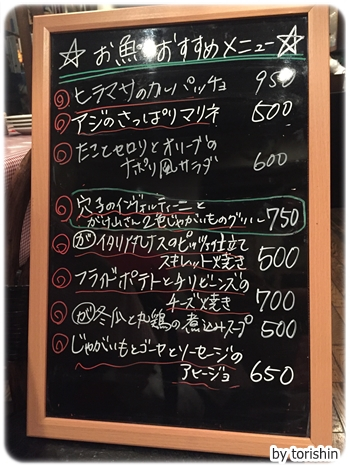 ☆お魚おすすめメニュー☆
ヒラマサのカルパッチョ 950
アジのさっぱりマリネ 500
たことセロリとオリーブの
ナポリ風サラダ 600
穴子のインヴォルティーニと
がけ山さん2色じゃがいものグリル 750
が イタリアナスのピッツァ仕立て
スキレット焼き 500
フライドポテトとチリビーンズの
チーズ焼き 700
が 冬瓜と丸鶏の煮込みスープ 500
じゃがいもとゴーヤとソーセージの
アヒージョ 650
by torishin